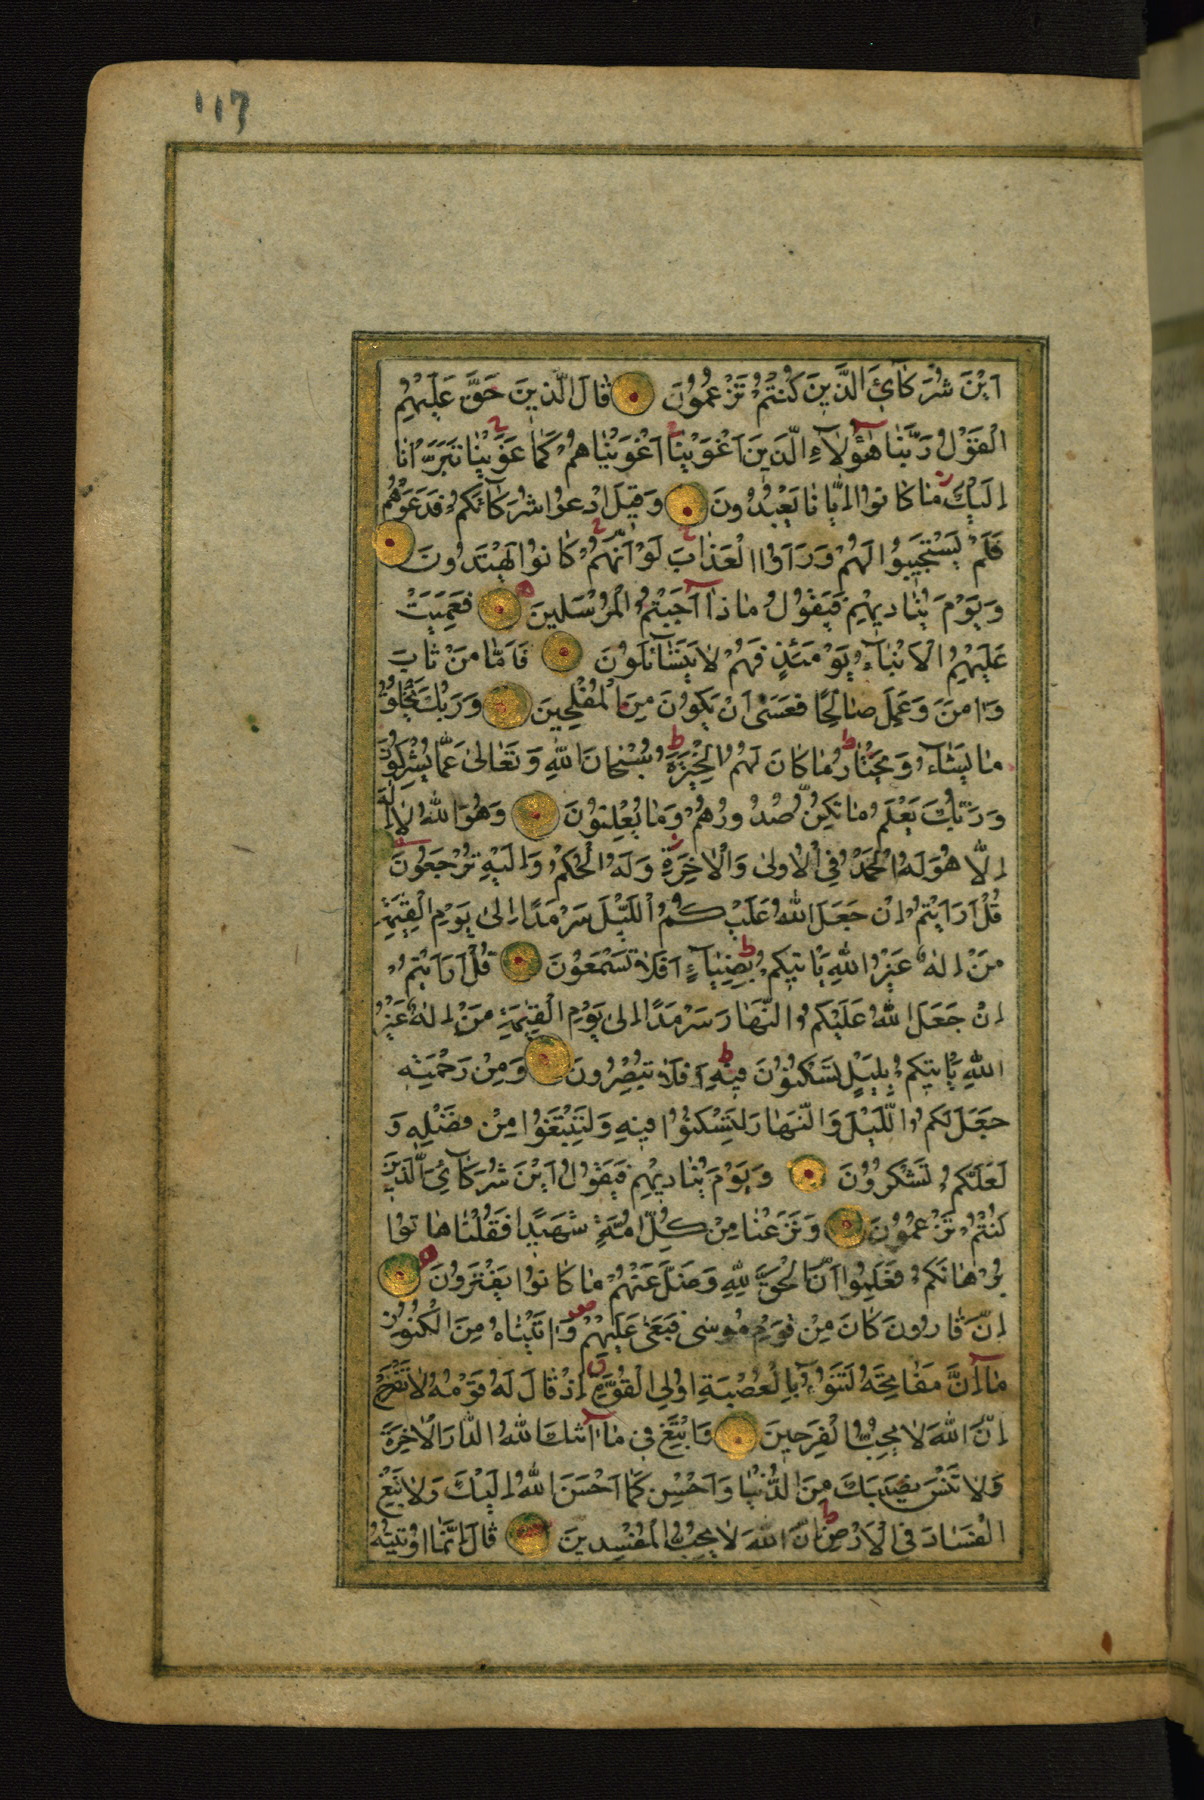 117
اَيْنَ شُرَكَآئِىَ الَّذِينَ كُنْتُمْ تَزْعُمُونَ قَالَ الَّذِينَ حَقَّ عَلَيْهِمُ
الْقَوْلُ رَبَّنَا هٰٓؤُلَآءِ الَّذِينَ اَغْوَيْنَا اَغْوَيْنَاهُمْ كَمَا غَوَيْنَا تَبَرَّاْنَا
اِلَيْكَ مَا كَانُوا اِيَّانَا يَعْبُدُونَ وَقِيلَ ادْعُوا شُرَكَآئَكُمْ فَدَعَوْهُمْ
فَلَمْ يَسْتَجِيبُوا لَهُمْ وَرَاَوُا الْعَذَابَ لَوْ اَنَّهُمْ كَانُوا يَهْتَدُونَ
وَيَوْمَ يُنَادِيهِمْ فَيَقُولُ مَاذَآ اَجَبْتُمُ الْمُرْسَلِينَ فَعَمِيَتْ
عَلَيْهِمُ الْاَنْبَآءُ يَوْمَئِذٍ فَهُمْ لَا يَتَسَآئَلُونَ فَاَمَّا مَنْ تَابَ
وَاٰمَنَ وَعَمِلَ صَالِحًا فَعَسٰى اَنْ يَكُونَ مِنَ الْمُفْلِحِينَ وَرَبُّكَ يَخْلُقُ
مَا يَشَآءُ وَيَخْتَارُ مَا كَانَ لَهُمُ الْخِيَرَةُ سُبْحَانَ اللّٰهِ وَتَعَالٰى عَمَّا يُشْرِكُونَ
وَرَبُّكَ يَعْلَمُ مَا تُكِنُّ صُدُورُهُمْ وَمَا يُعْلِنُونَ وَهُوَ اللّٰهُ لَا اِلٰهَ
اِلَّا هُوَ لَهُ الْحَمْدُ فِى الْاُولٰى وَالْاٰخِرَةِ وَلَهُ الْحُكْمُ وَاِلَيْهِ تُرْجَعُونَ
قُلْ اَرَاَيْتُمْ اِنْ جَعَلَ اللّٰهُ عَلَيْكُمُ اللَّيْلَ سَرْمَدًا اِلٰى يَوْمِ الْقِيٰمَةِ
مَنْ اِلٰهٌ غَيْرُ اللّٰهِ يَاْتِيكُمْ بِضِيَآءٍ اَفَلَا تَسْمَعُونَ قُلْ اَرَاَيْتُمْ
اِنْ جَعَلَ اللّٰهُ عَلَيْكُمُ النَّهَارَ سَرْمَدًا اِلٰى يَوْمِ الْقِيٰمَةِ مَنْ اِلٰهٌ غَيْرُ
اللّٰهِ يَاْتِيكُمْ بِلَيْلٍ تَسْكُنُونَ فِيهِ اَفَلَا تُبْصِرُونَ وَمِنْ رَحْمَتِهِ
جَعَلَ لَكُمُ اللَّيْلَ وَالنَّهَارَ لِتَسْكُنُوا فِيهِ وَلِتَبْتَغُوا مِنْ فَضْلِهِ وَ
لَعَلَّكُمْ تَشْكُرُونَ وَيَوْمَ يُنَادِيهِمْ فَيَقُولُ اَيْنَ شُرَكَآئِىَ الَّذِينَ
كُنْتُمْ تَزْعُمُونَ وَنَزَعْنَا مِنْ كُلِّ اُمَّةٍ شَهِيدًا فَقُلْنَا هَاتُوا
بُرْهَانَكُمْ فَعَلِمُوا اَنَّ الْحَقَّ لِلّٰهِ وَضَلَّ عَنْهُمْ مَا كَانُوا يَفْتَرُونَ
اِنَّ قَارُونَ كَانَ مِنْ قَوْمِ مُوسٰى فَبَغٰى عَلَيْهِمْ وَاٰتَيْنَاهُ مِنَ الْكُنُوزِ
مَآ اِنَّ مَفَاتِحَهُ لَتَنُوءُ بِالْعُصْبَةِ اُولِى الْقُوَّةِ اِذْ قَالَ لَهُ قَوْمُهُ لَا تَفْرَحْ
اِنَّ اللّٰهَ لَا يُحِبُّ الْفَرِحِينَ وَابْتَغِ فِى مَآ اٰتٰكَ اللّٰهُ الدَّارَ الْاٰخِرَةَ
وَلَا تَنْسَ نَصِيبَكَ مِنَ الدُّنْيَا وَاَحْسِنْ كَمَا اَحْسَنَ اللّٰهُ اِلَيْكَ وَلَا تَبْغِ
الْفَسَادَ فِى الْاَرْضِ اِنَّ اللّٰهَ لَا يُحِبُّ الْمُفْسِدِينَ قَالَ اِنَّمَا اُوتِيتُهُ